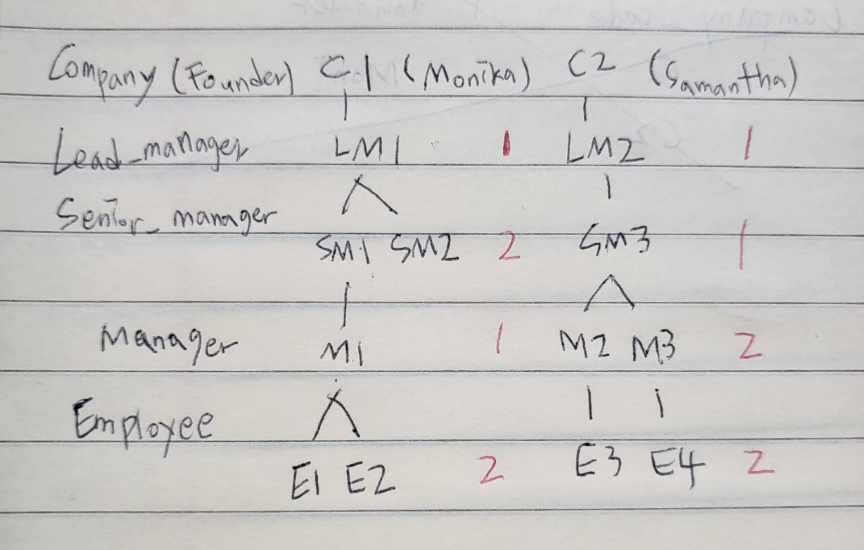 Company (Founder) C1 (Monika) C2 (Samantha)
Lead_manager LM1 1 LM2 1
Senior_manager
SM1 SM2 2 SM3 1
Manager M1 1 M2 M3 2
Employee
E1 E2 2 E3 E4 2